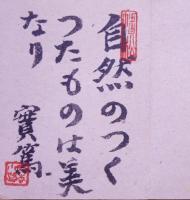 自然のつく
つたものは美
なり
實篤